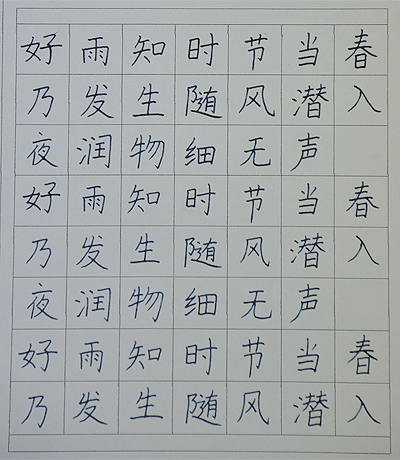 好雨知时节当春
乃发生随风潜入
夜润物细无声
好雨知时节当春
乃发生随风潜入
夜润物细无声
好雨知时节当春
乃发生随风潜入